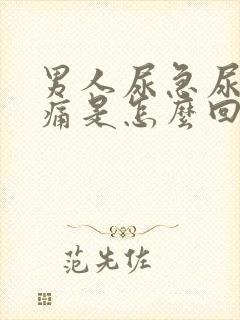 男人尿急尿
痛是怎麼回
范先佐